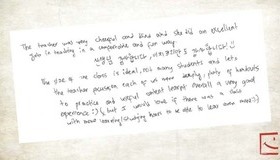 The teacher was very cheerful and kind and she did an excellent
job in teaching in a comfortable and fun way.
선생님 감사합니다,
The size of the class is ideal, not many students and lets
the teacher focus on each of us more
to practice and useful content learnt. Overall a very good
experience :) but I would love if there was a class
with more learning/studying hours to be able to learn even more :)